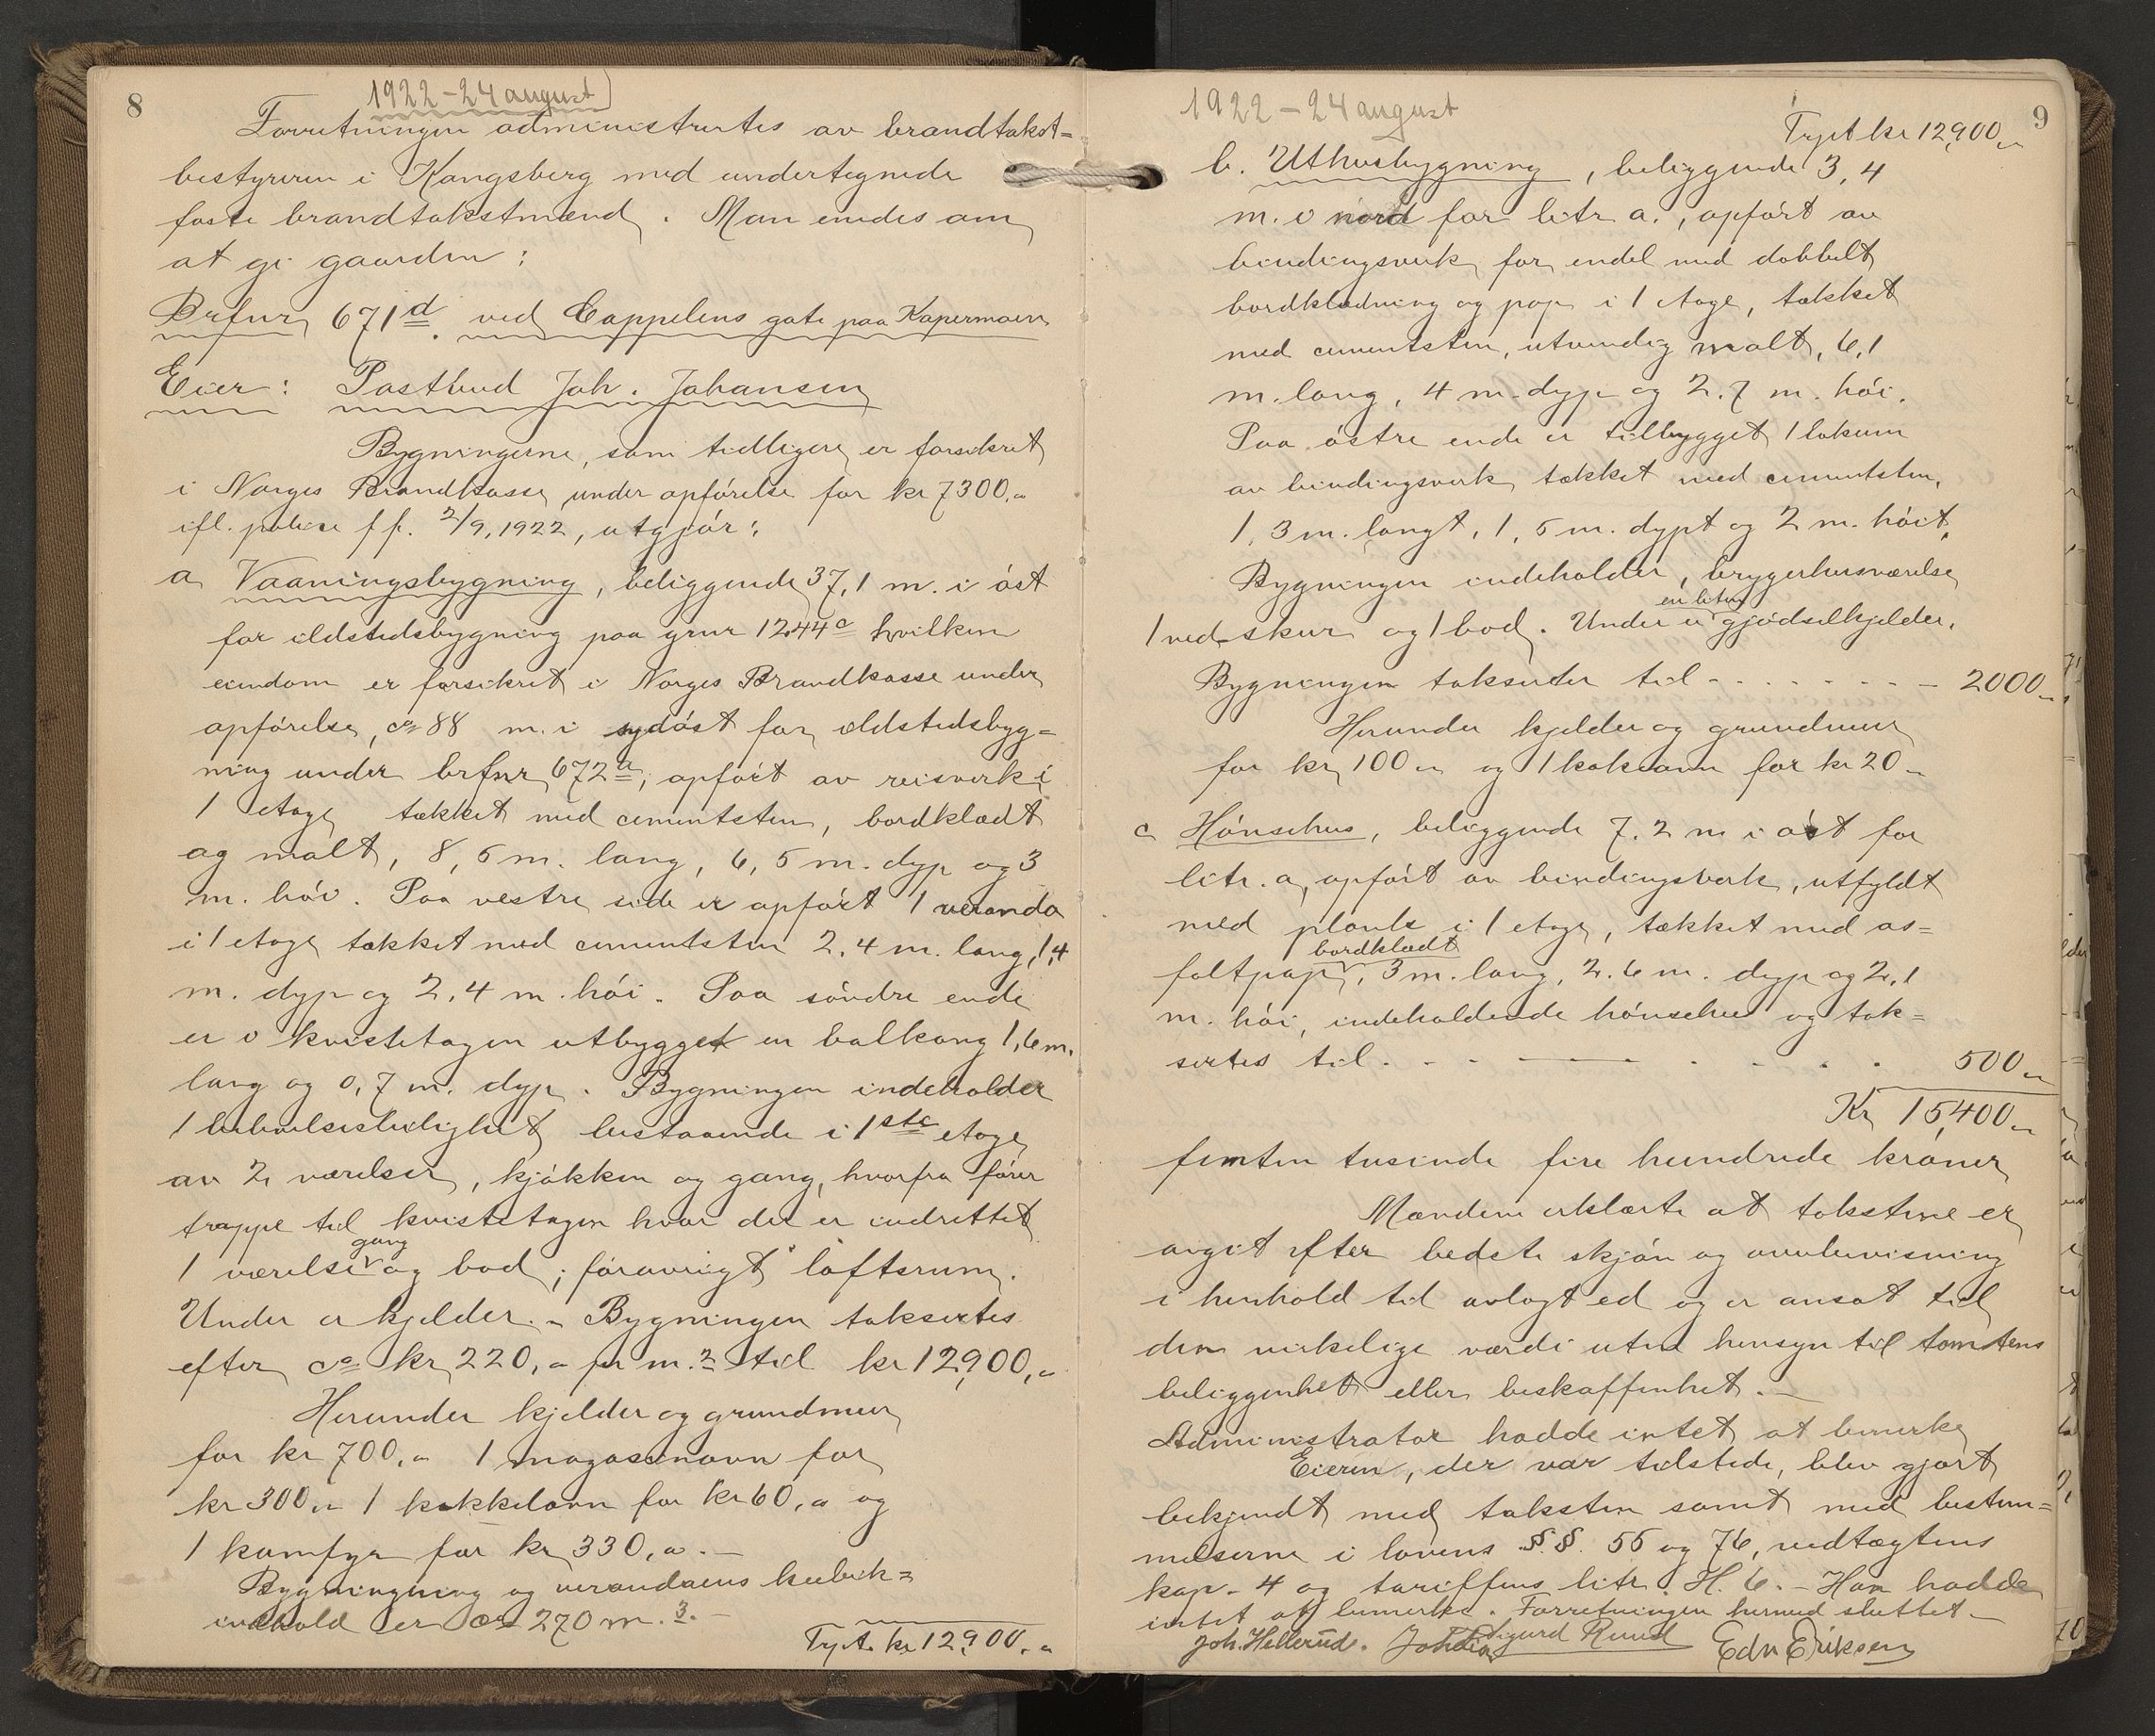 8
1922 – 24 august
Forretningen administrertes av brandtakst=
bestyreren i Kongsberg med undertegnede
faste brandtakstmænd. Man enedes om
at gi gaarden:
Brfnr 671d. ved Cappelens gate paa Kapermoen
Eier: Postbud Joh. Johansen
Bygningerne, som tidligere er forsikret
i Norges Brandkasse under opførelse for kr 7300,-
ifl. police ff. 2/9, 1922, utgjør:
a Vaaningsbygning, beliggende 37,1 m. i øst
for ildstedsbygning paa grnr 1244c hvilken
eiendom er forsikret i Norges Brandkasse under
opførelse, ca 88 m. i sydøst for ildstedsbyg=
ning under brfnr 672a, opført av reisverk i
1 etage tækket med cementsten, bordklædt
og malt, 8,5 m. lang, 6,5 m. dyp og 3
m. høi. Paa vestre side er opført 1 veranda
i 1 etage tækket med cementsten 2.4 m. lang, 1,4
m. dyp og 2,4 m. høi. Paa søndre ende
er i kvistetagen utbygget en balkong 1,6 m.
lang og 0,7 m. dyp. Bygningen indeholder
1 beboelsesleilighet bestaaende i 1ste etage
av 2 værelser, kjøkken og gang, hvorfra fører
trappe til kvistetagen hvor der er indrettet
gang
1 værelse og bod; forøvrigt loftsrum.
Under er kjelder. - Bygningen taksertes
efter ca kr 220,- pr m.2 til kr 12,900,-
Herunder kjelder og grundmur
for kr 700,- 1 magasinovn for
kr 300,- 1 kakkelovn for kr 60,- og
1 komfyr for kr 330,-. –
Bygningning og verandaens kubik=
indhold er ca 270 m.3. –
Trpt. kr 12,900,-
9
1922 – 24 august
Trpt kr 12,900,-
b. Uthusbygning, beliggende 3,4
m. i nord for litr a., opført av
bindingsverk for endel med dobbelt
bordklædning og pap i 1 etage, tækket
med cementsten, utvendig malt, 6,1
m. lang, 4 m. dyp og 2.7 m. høi.
Paa østre ende er tilbygget 1 lokum
av bindingsverk tækket med cementsten,
1,3 m. langt, 1,5 m. dypt og 2 m. høit.
Bygningen indeholder, bryggerhusværelse,
en liten
1 vedskur og 1 bod. Under er gjødselkjelder.
Bygningen takseredes til - - - - - - - 2000,-
Herunder kjelder og grundmur
for kr 100,- og 1 kokeovn for kr 20 -
c Hønsehus, beliggende 7.2 m i øst for
litr. a, opført av bindingsverk, utfyldt
med plank i 1 etage, tækket med as=
bordklædt
faltpap, 3 m. lang, 2.6 m. dyp og 2,1
m. høi, indeholdende hønsehus og tak=
sertes til - - - - - - - 500,-
Kr 15,400,-
femten tusinde fire hundrede kroner
Mændene erklærte at taksterne er
avgit efter bedste skjøn og overbevisning
i henhold til avlagt ed og er ansat til
den virkelige værdi uten hensyn til tomtens
beliggenhet eller beskaffenhet. –
Administrator hadde intet at bemerke
Eieren, der var tilstede, blev gjort
bekjendt med taksten samt med bestem=
melserne i lovens §.§. 55 og 76, vedtægtens
kap. 4 og tariffens litr. H. 6. – Han hadde
intet at bemerke. Forretningen hermed sluttet –
Joh. Hellerud. Sigurd Ruud Edv Eriksen